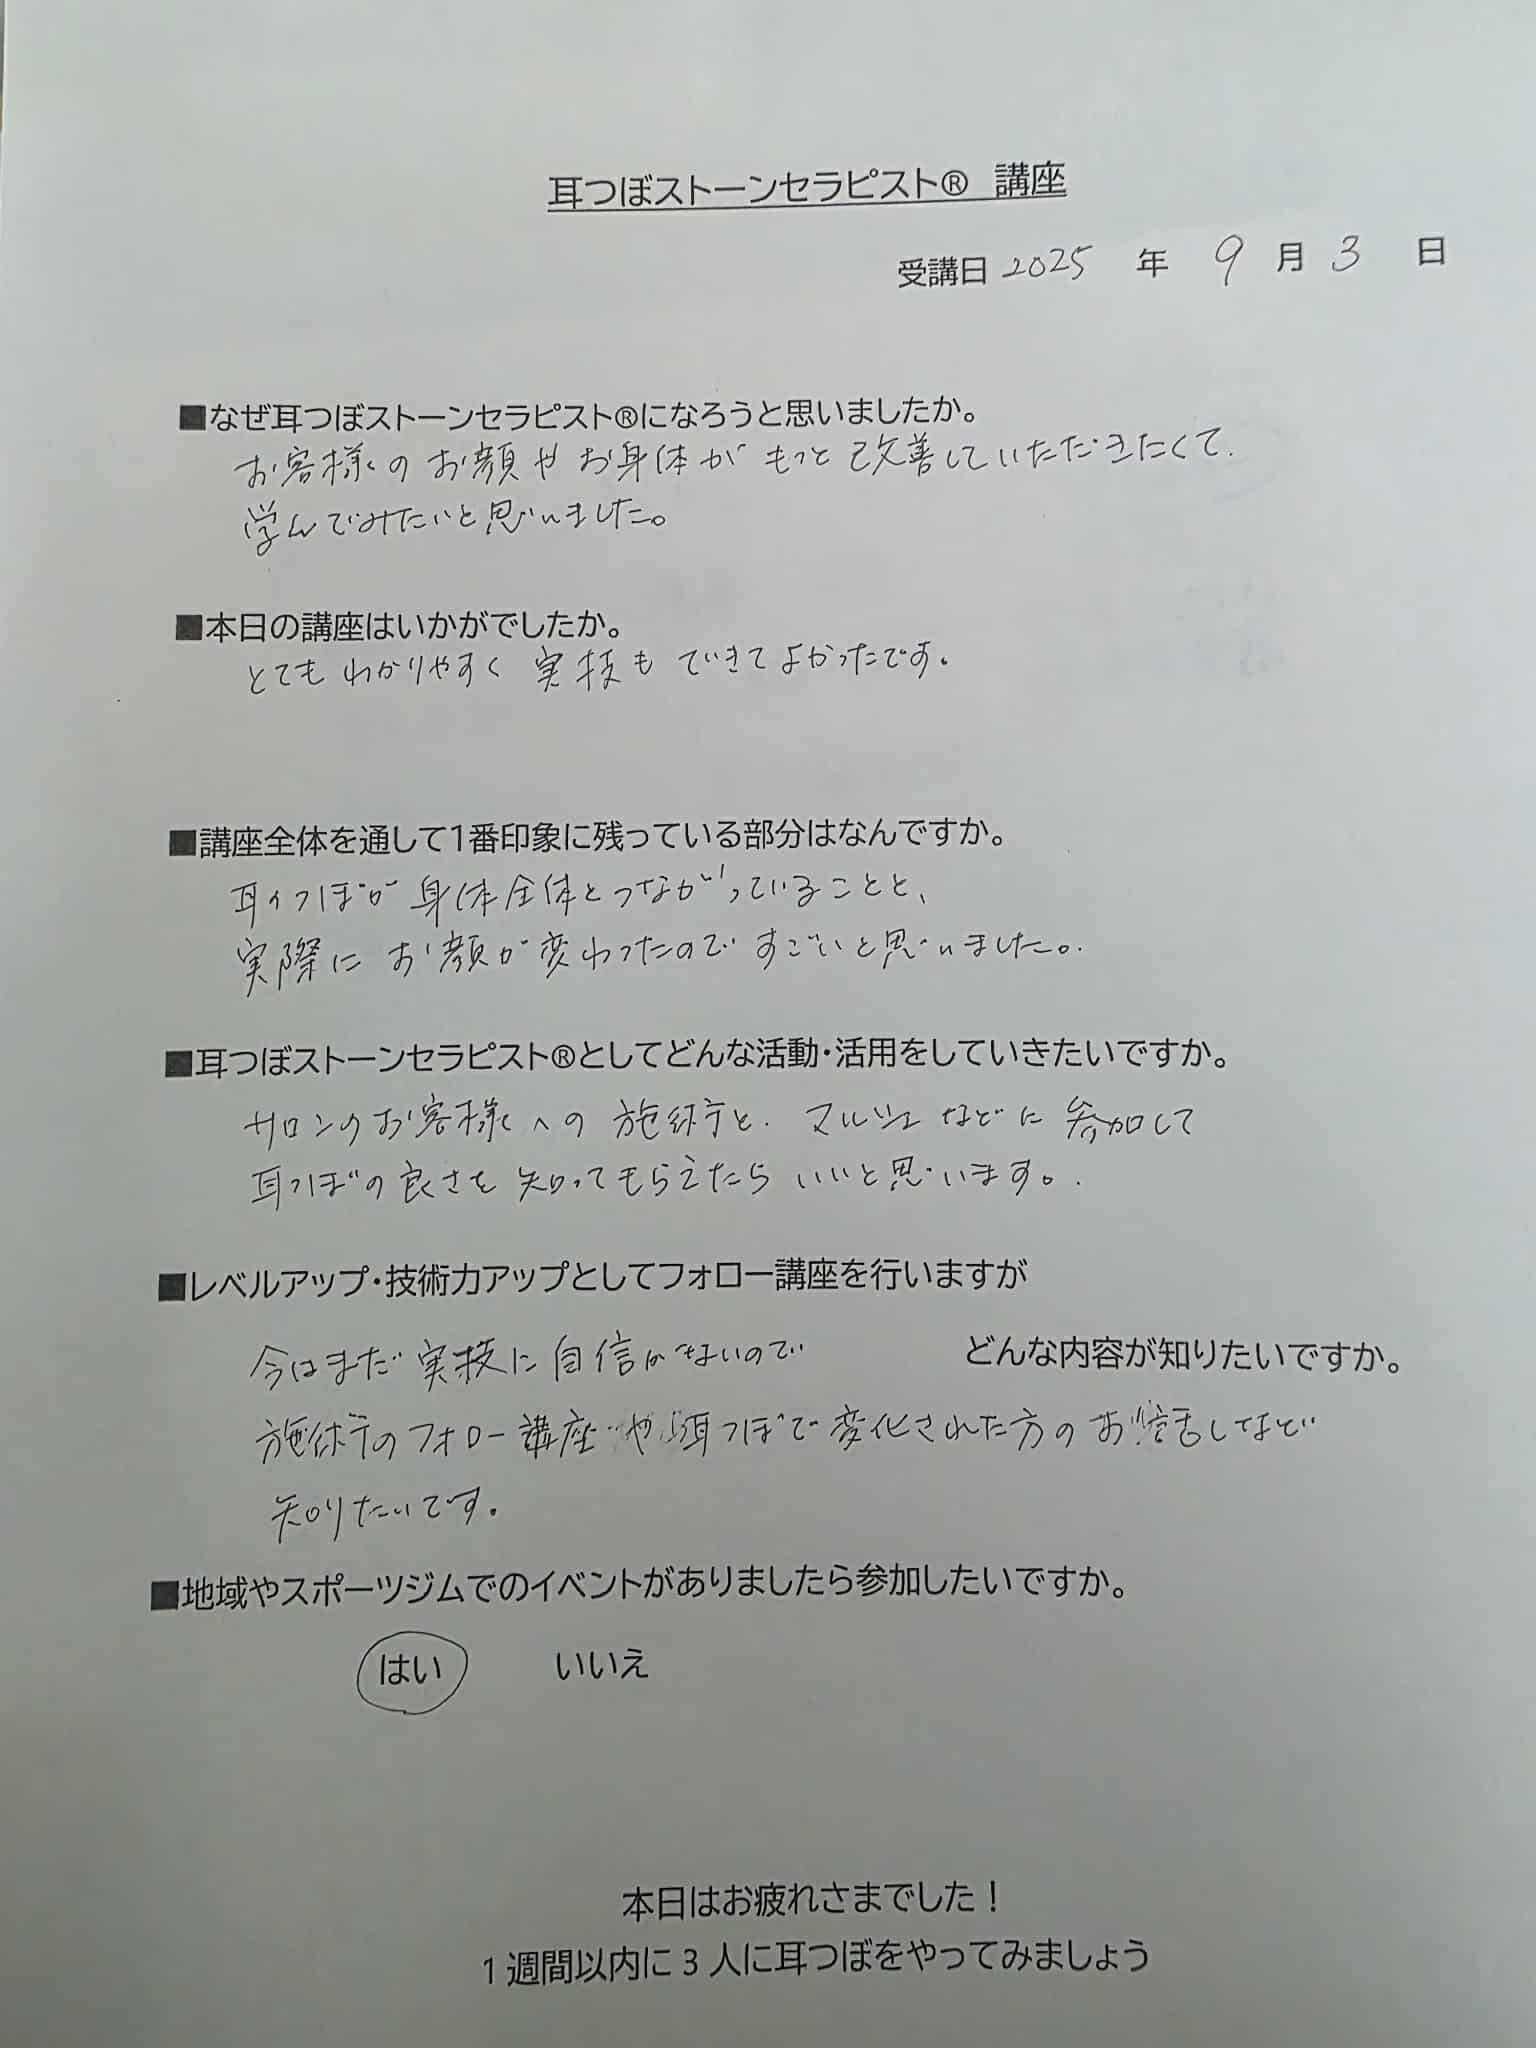 耳つぼストーンセラピスト® 講座
受講日 2025 年 9 月 3 日
■なぜ耳つぼストーンセラピスト®になろうと思いましたか。
お客様のお顔やお身体がもっと改善していただきたくて、
学んでみたいと思いました。
■本日の講座はいかがでしたか。
とてもわかりやすく実技もできてよかったです。
■講座全体を通して1番印象に残っている部分はなんですか。
耳つぼが身体全体とつながっていることと、
実際にお顔が変わったのですごいと思いました。
■耳つぼストーンセラピスト®としてどんな活動・活用をしていきたいですか。
サロンのお客様への施術と、マルシェなどに参加して
耳つぼの良さを知ってもらえたらいいと思います。
■レベルアップ・技術力アップとしてフォロー講座を行いますが
どんな内容が知りたいですか。
今はまだ実技に自信がないので
施術のフォロー講座や耳つぼで変化された方のお話しなど
知りたいです。
■地域やスポーツジムでのイベントがありましたら参加したいですか。
はい いいえ
本日はお疲れさまでした！
1週間以内に3人に耳つぼをやってみましょう